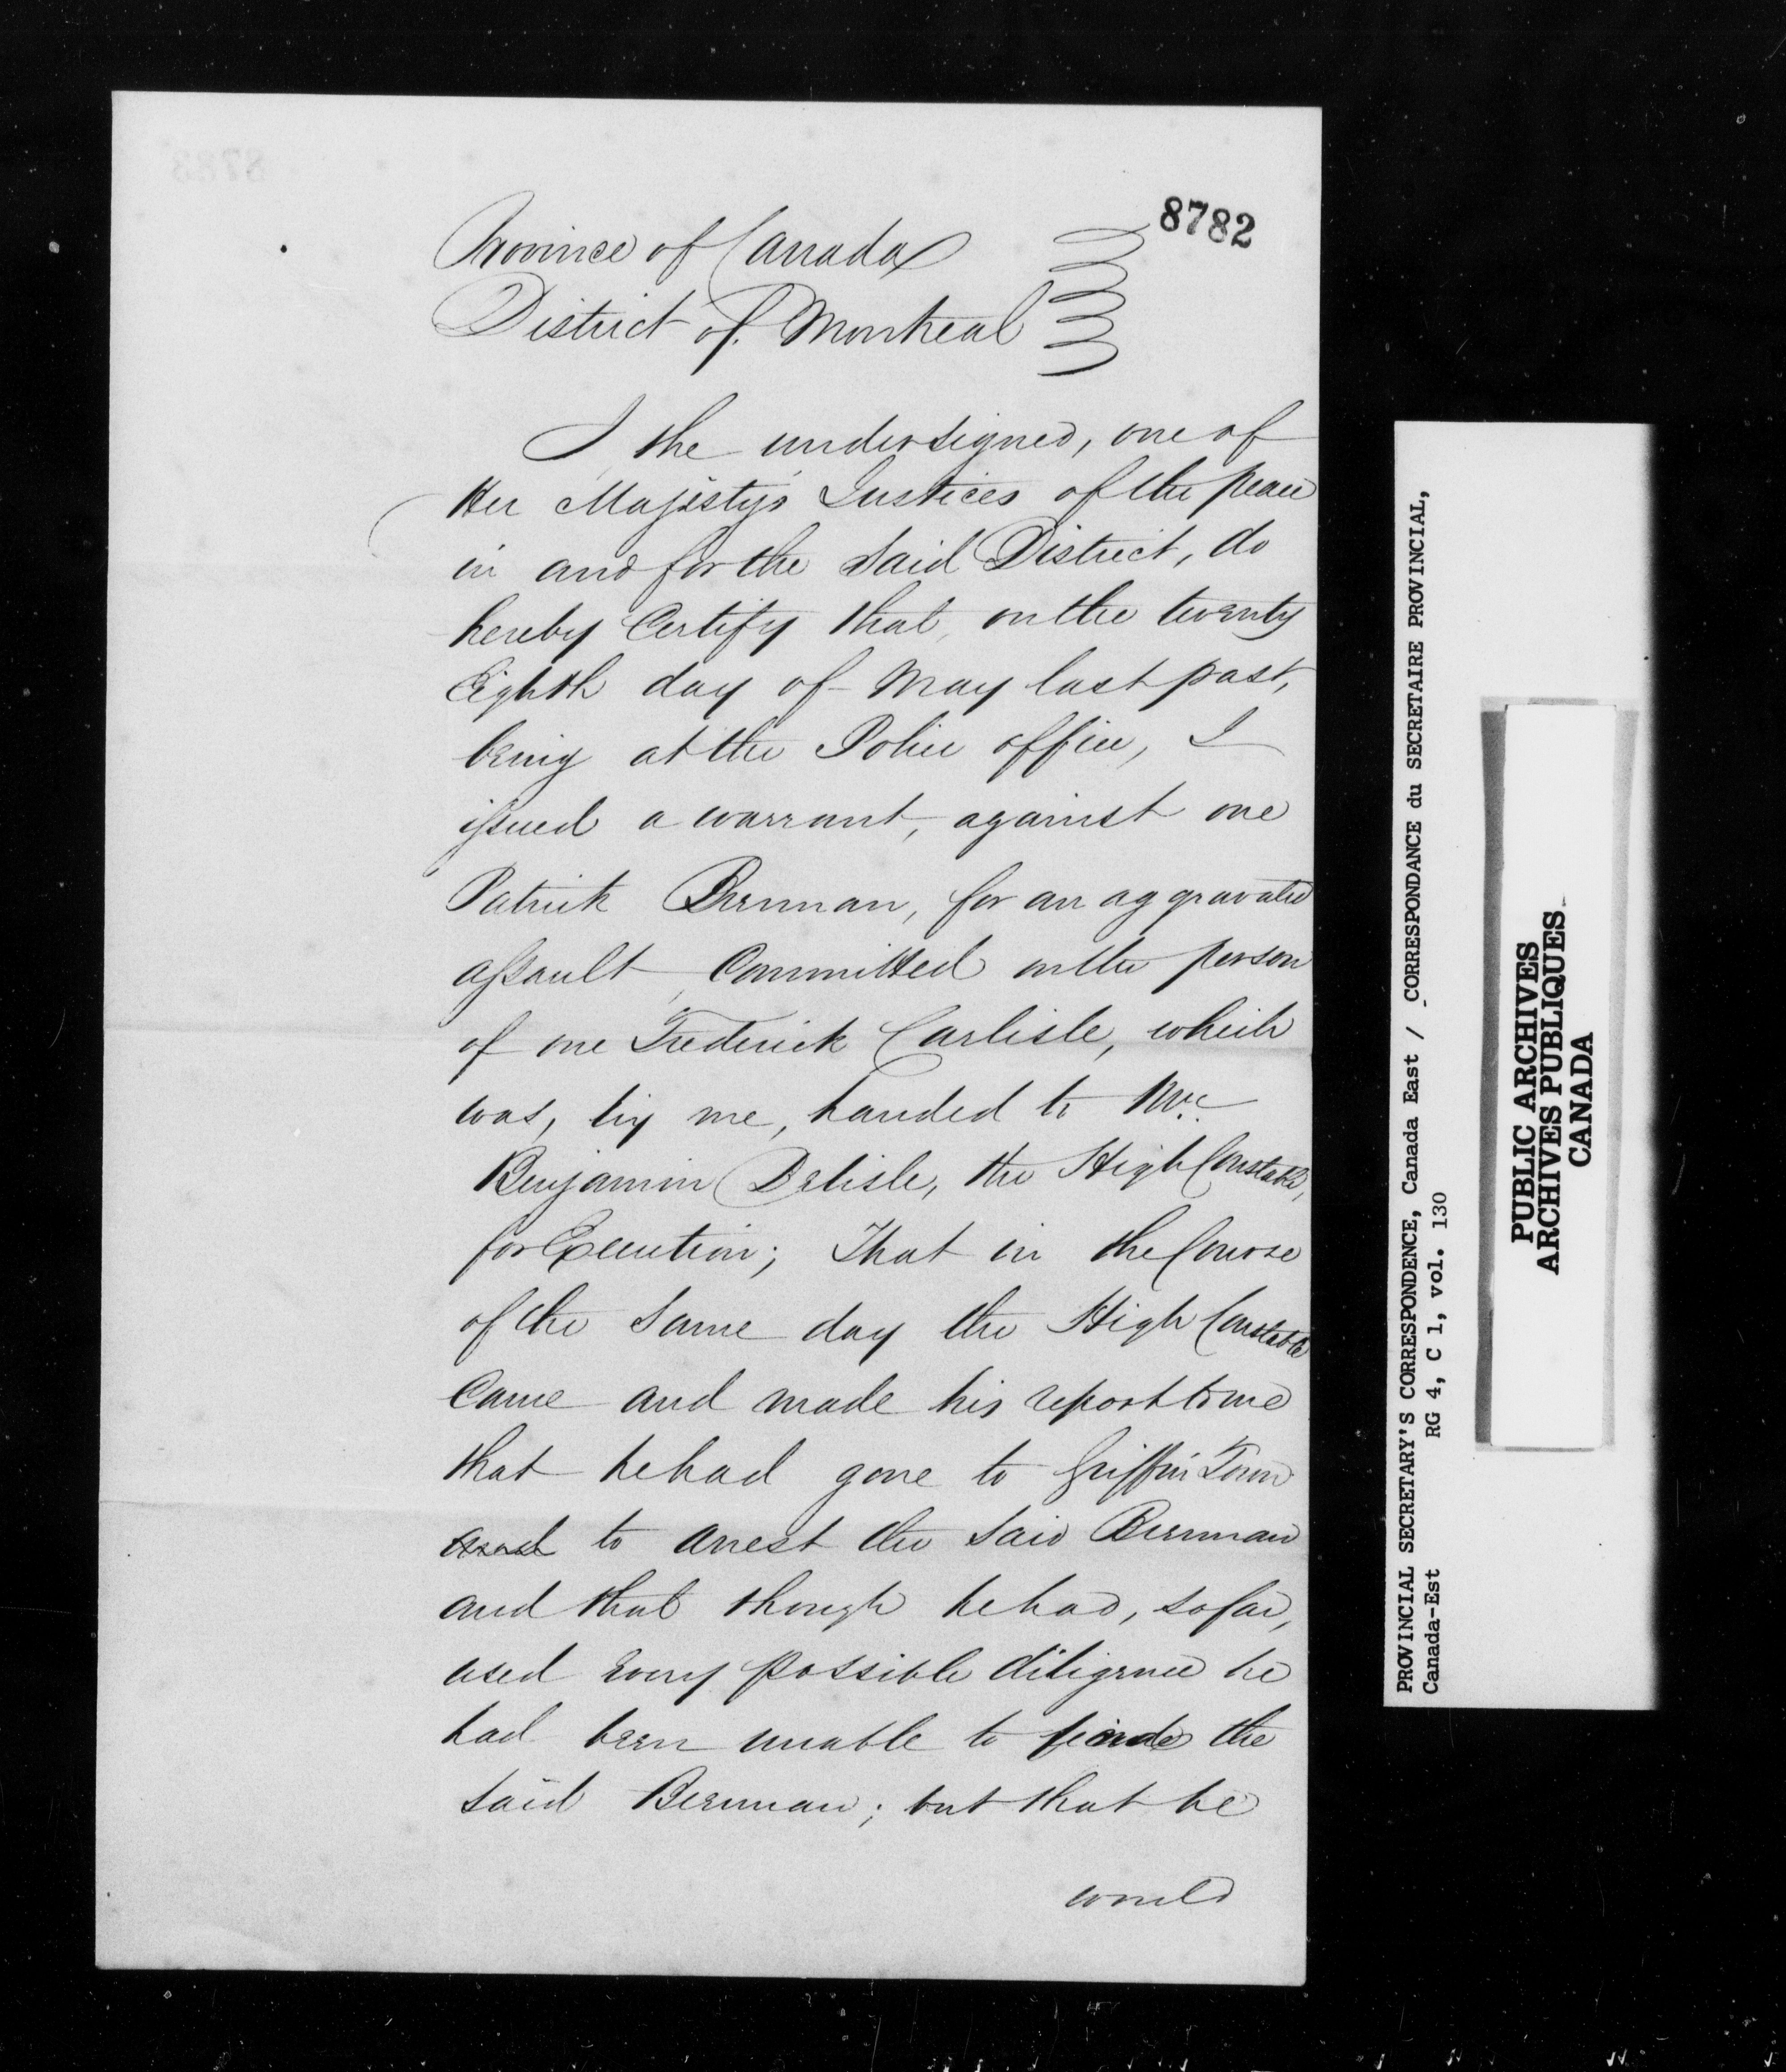 8782
Province of Canada
District of Montreal
I the undersigned, one of
Her Majesty's Justices of the peace
in and for the said District, do
hereby Certify that, on the twenty
Eighth day of May last past,
being at the Police office, I
issued a warrant, against one
Patrick Brennan, for an aggravated
assault, Committed on the person
of one Frederick Carlisle, which
was, by me, handed to Mr.
Benjamin Delisle, the High Constable,
for Execution; That in the Course
of the same day the High Constable
Came and made his report to me
that he had gone to Griffin Town
and to arrest the said Brennan
and that though he had, so far,
used Every possible diligence he
had been unable to finde the
said Brennan; but that he
would
PROVINCIAL SECRETARY'S CORRESPONDENCE, Canada East / CORRESPONDANCE du SECRETAIRE PROVINCIAL,
Canada-Est RG 4, C 1, vol. 130
PUBLIC ARCHIVES
ARCHIVES PUBLIQUES
CANADA